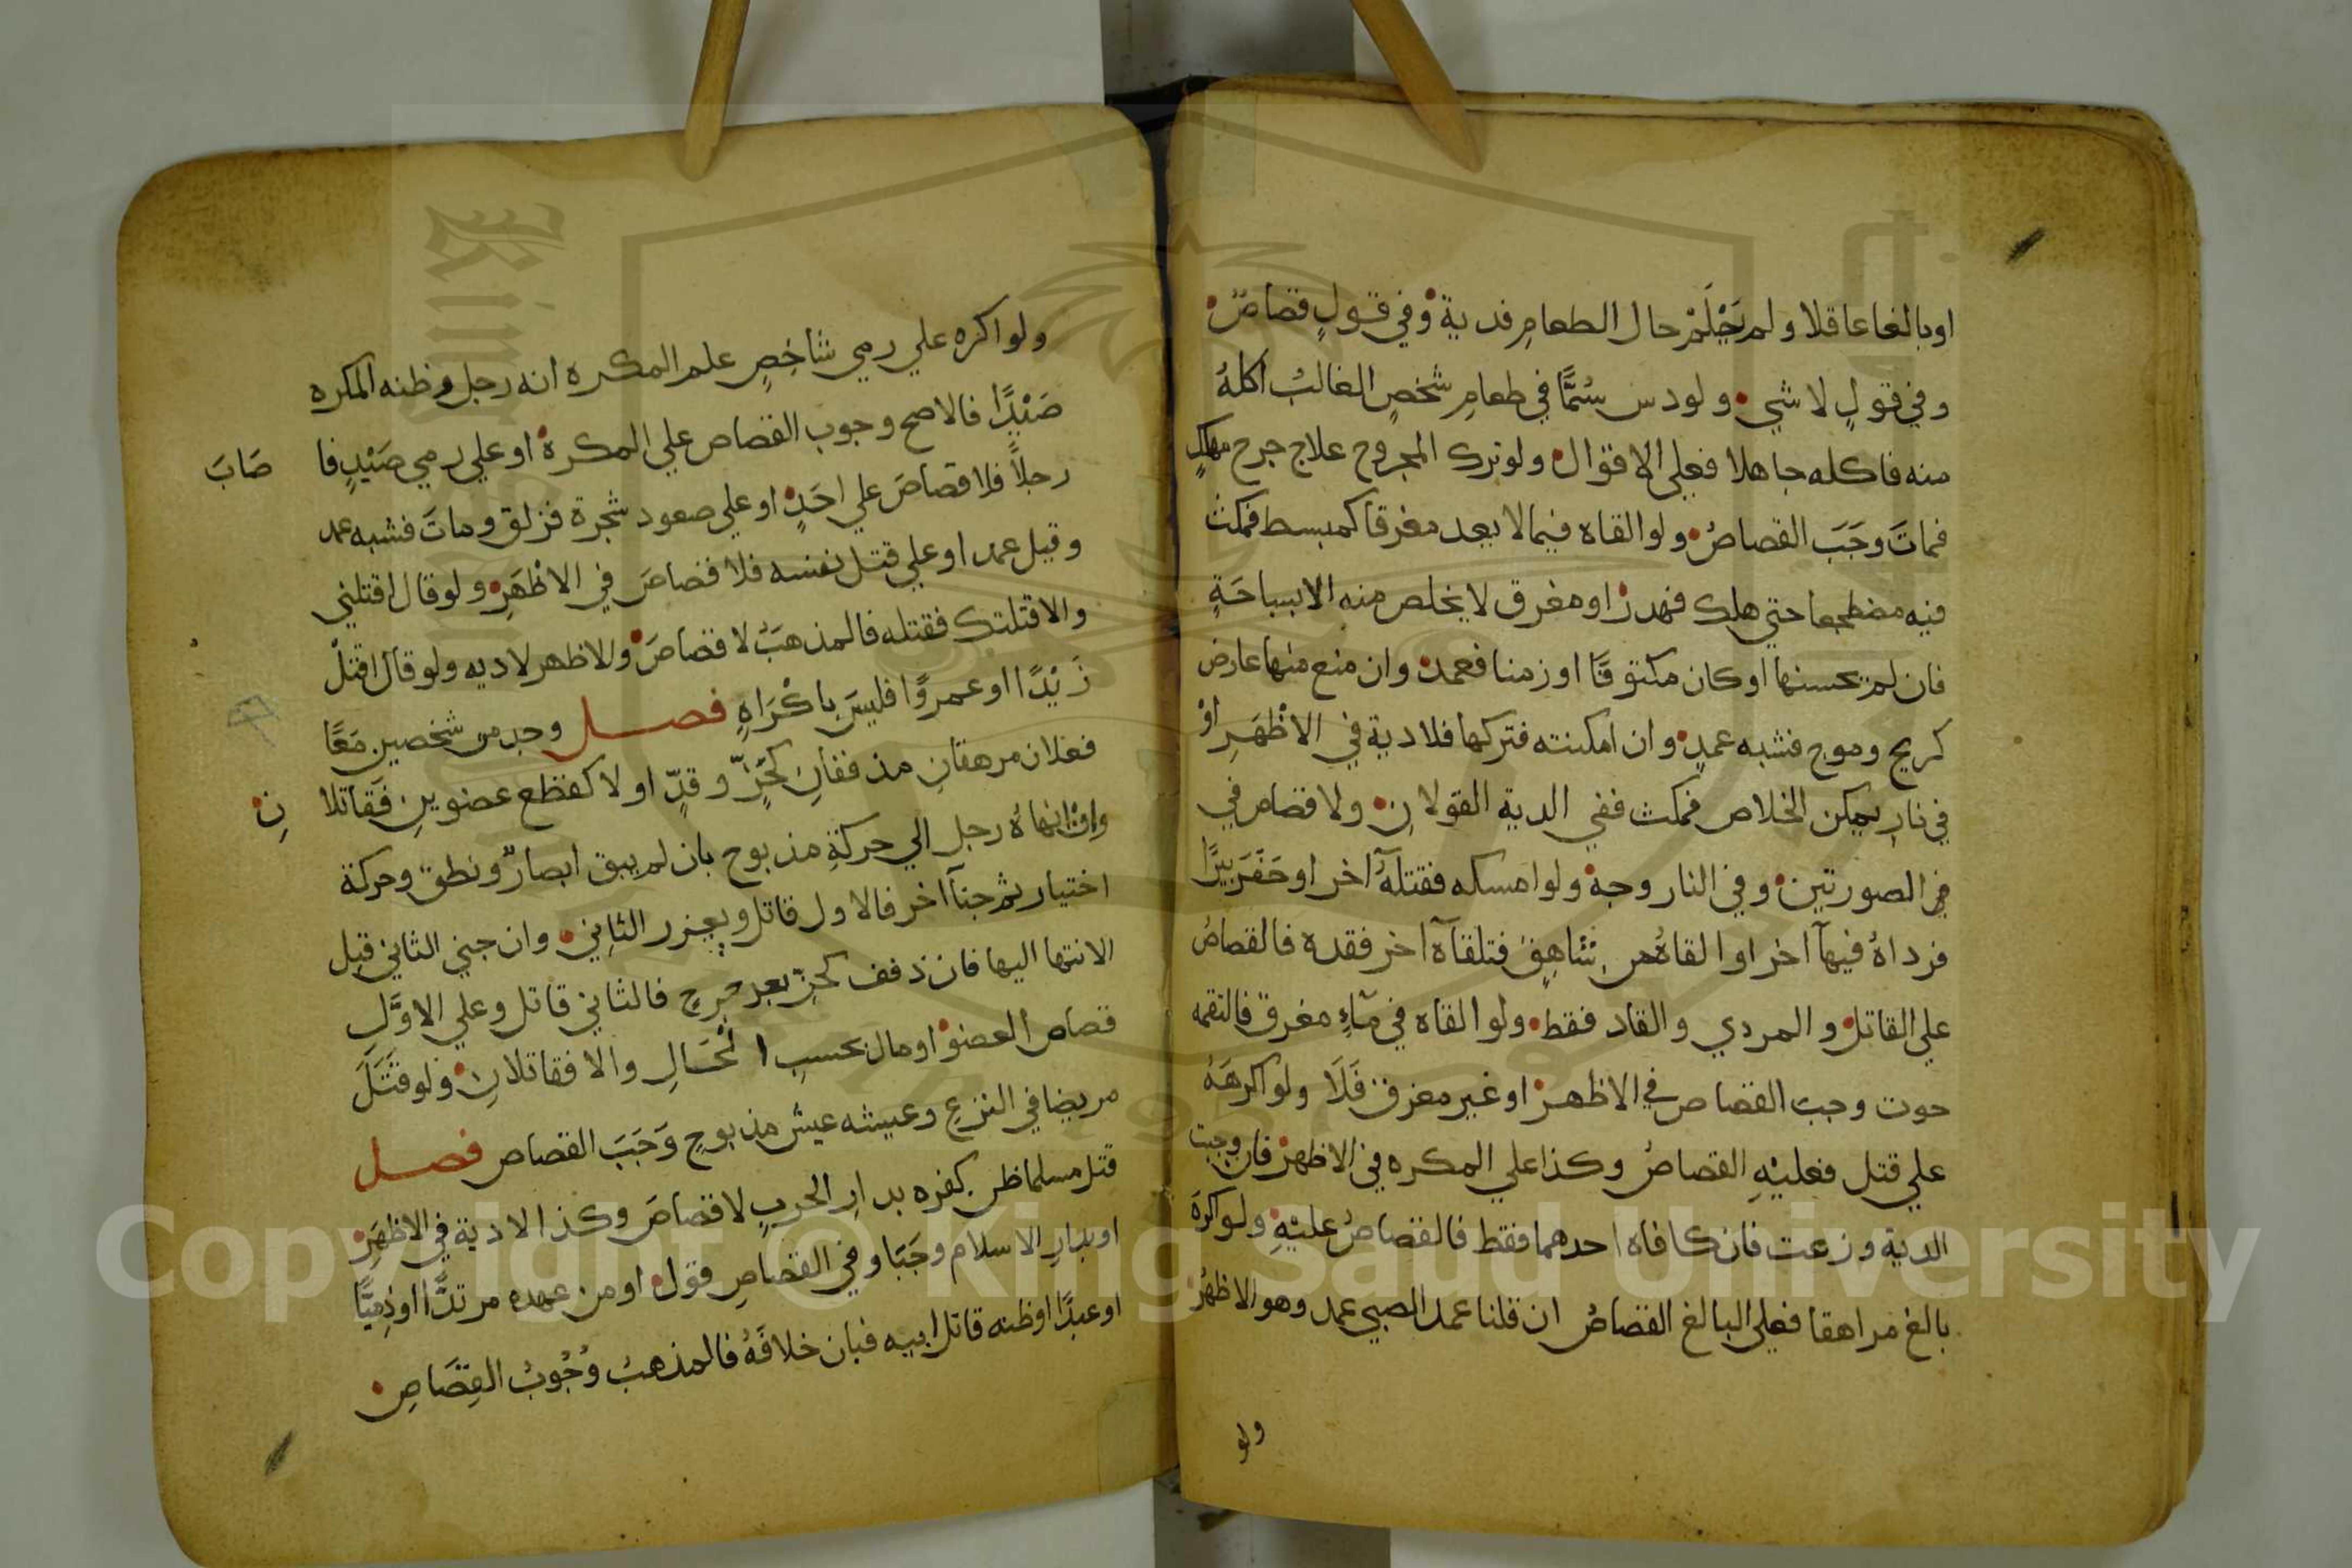 اوبالغا عاقلا ولم يَعْلَمْ حال الطعامِ فدية وفي قولٍ قصاصٌ
وفي قولٍ لا شي ولو دس سُمًّا في طعامِ شخصٍ الغالبُ اكلهُ
منه فاكله جاهلا فعلي الاقوال ولو ترك المجروح علاج جرح مهلكٍ
فماتَ وجَبَ القصاصُ ولو القاه فيما لا يعد مغرقا كمبسط فمكث
فيه مضطجعا حتي هلك فهدر او مغرق لا يخلص منه الا بسباحَةٍ
فان لم يحسنها او كان مكتوفًا او زمنا فعمد وان منع منها عارض
كريح وموج فشبه عمدٍ وان امكنته فتركها فلا دية في الاظْهَرِ اوْ
في نارٍ يمكن الخلاص فمكث ففي الدية القولانِ ولا قصاص في
في الصورتين وفي النار وجهٌ ولو امسكه فقتلهُ آخر او حَفَرَ بيرًا
فرداهُ فيها آخر او القاهُ من شاهِقٍ فتلقاهُ آخر فقده فالقصاصُ
علي القاتل والمردي والقاد فقط ولو القاه في مآءٍ مغرق فالتقمه
حوت وجب القصاص في الاظهر او غير مغرق فَلَا ولو اكرهَهُ
علي قتل فعليْهِ القصاصُ وكذا علي المكره في الاظهر فان وجبت
الدية وزعت فان كافاه احدهما فقط فالقصاصُ عليْهِ ولو اكرَهَ
بالغ مراهقا فعلي البالغ القصاصُ ان قلنا عمد الصبي عمد وهو الاظهرُ
ولو
ولو اكره علي رمي شاخِصٍ علم المكره انه رجل وظنه المكره
صَيْدًا فالاصح وجوب القصاص علي المكره او علي رمي صَيْدٍ فا صَابَ
رجلاً فلا قصاصَ علي احَدٍ او علي صعود شجرة فزلق وماتَ فشبه عمد
وقيل عمد او علي قتل نفسه فلا قصاصَ في الاظْهَرِ ولو قال اقتلني
والا قتلتك فقتله فالمذهبُ لا قصاصَ والاظهر لا ديه ولو قال اقتلْ
زَيْدًا او عمروًا فليسَ باكْرَاهٍ فصل وجد من شخصين مَعًا
فعلان مرهقانِ مذففانِ كحَزٍّ وقدٍّ او لا كقطع عضوينِ فَقاتلا نِ
وان انهاهُ رجل الي حركةِ مذبوح بان لم يبق ابصارٌ ونطق وحركة
اختيار ثم جنا آخر فالاول قاتل ويعزر الثاني وان جني الثاني قبل
الانتها اليها فان ذفف كحزّ بعد جرح فالثاني قاتل وعلي الاوَّلِ
قصاص العضو او مال بحسبِ الْحَالِ والا فقاتلانِ ولو قتَلَ
مريضا في النزعِ وعيشه عيش مذبوحٍ وَجَبَ القصاص فصل
قتل مسلما ظن كفره بدارِ الحربِ لا قصاصَ وكذا لا دية في الاظهَرِ
او بدارِ الاسلام وجَبَا وفي القصاصِ قول او من عهده مرتدًّا او ذِمِّيًّا
او عبدًا او ظنه قاتل ابيه فبان خلافَهُ فالمذهبُ وُجُوبُ القِصَاصِ
Copyright © King Saud University